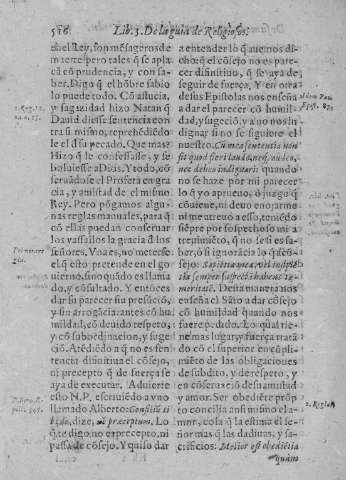 516 Lib. 3. De la guia de Religiosos.
el Rey, son mẽsageros de
muerte: pero tales q̃ se apla
cã cõ prudencia, y con sa-
ber. Digo q̃ el hõbre sabio
lo puede todo. Cõ astucia,
y sagazidad hizo Natan q̃
David diesse sentencia con
tra si mismo, reprehẽdiẽdo
le el d̃ su pecado. Que mas?
Hizo q̃ le confessasse, y se
bolviesse a Dios. Y todo, cõ
servãdose el Profeta en gra
cia, y amistad de el mismo
Rey. Pero põgamos algu-
nas reglas manuales, para q̃
cõ ellas puedan conservar
los vassallos la gracia d̃ los
señores. Vna es, no meterse
el q̃ esto pretende en el go-
vierno, sino quãdo es llama
do, y cõsultado. Y entonces
dar su parecer sin presũciõ,
y sin arrogãcia: antes cõ hu
mildad, cõ devido respeto,
y cõ subordinacion, y suge-
ciõ. Atẽdiẽdo a q̃ no es sen-
tencia difinitiva el cõsejo,
ni precepto q̃ de fuerça se
aya de executar. Advierte
esto N. P. escriviẽdo a vno
llamado Alberto: Consiliũ ti
bi do, dize, nõ præceptum. Lo
q̃ te digo no es precepto, ni
passa de cõsejo. Y quiso dar
a entender lo q̃ avemos di-
cho: q̃ el cõsejo no es pare-
cer difinitivo, q̃ se aya de
seguir de fuerça. Y en otra
de sus Epistolas nos enseña
a dar el parecer cõ humil-
dad, y sugeciõ, y a no nos in
dignar si no se siguiere el
nuestro. Cũ mea sententia non
sit quod fieri land
nec debeo indignari: quando
no se haze por mi parecer
lo q̃ yo apruevo, o juzgo q̃
cõviene, ni devo enojarme
ni me atrevo a esso, teniẽdo
siẽpre por sospechoso mi a
trevimiẽto, q̃ no se si es sa-
ber, o si ignorãcia lo q̃ acõ-
sejo. Sapiẽtia mea, vel insipiẽ
tia semper suspectã habens te-
meritatẽ. Desta manera nos
enseña el Sãto a dar cõsejo
cõ humildad quando nos
fuere pedido. Lo qual tie-
ne mas lugar, y fuerça trata
do cõ el superior en cũpli-
miẽto de las obligaciones
de subdito, y de respeto, y
en cõservaciõ de su amistad
y amor. Ser obediẽte prõp
to concilia ansi mismo el a-
mor, cosa q̃ la estima el se-
ñor mas q̃ las dadivas, y sa-
crificios: Melior est obediẽtia
quàm
2. Reg. 12.
Primera re
gla.
2. Regla.